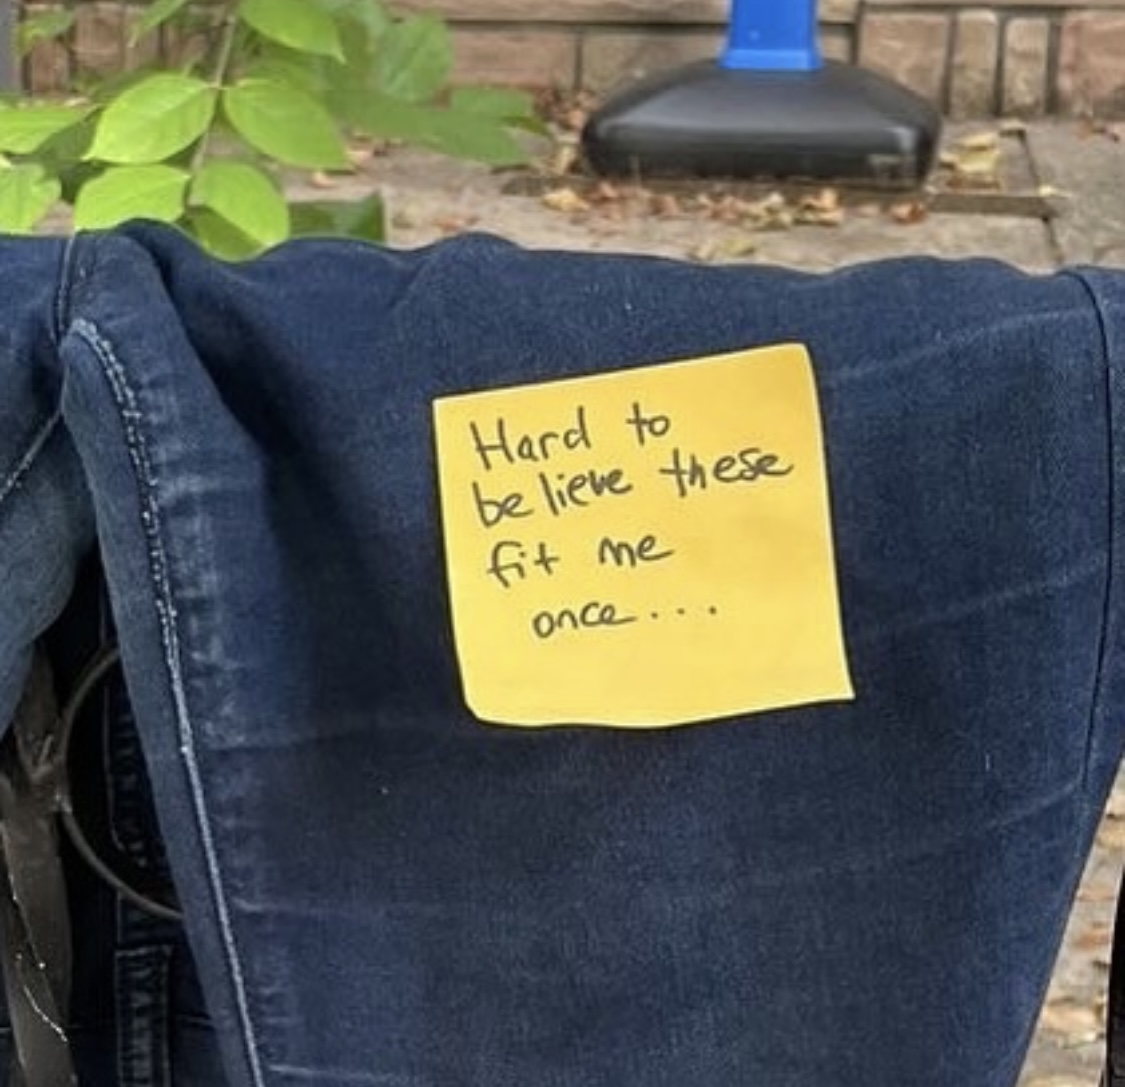 Hard to
believe these
fit me
once...